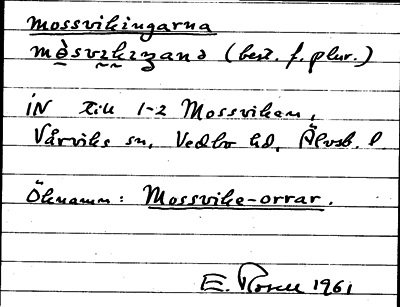 Mossvikingarna
mèsvikiŋana (best. f. plur.)
IN till 1-2 Mossviken,
Vårviks sn, Vedbo hd, Älvsb. l
Öknamn: Mossvike-orrar.
E. Rosell 1961